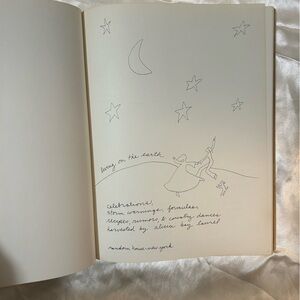 living on the earth
celebrations,
storm warnings, formulas,
recipes, rumors, & country dances
harvested by alicia bay laurel
random house • new york